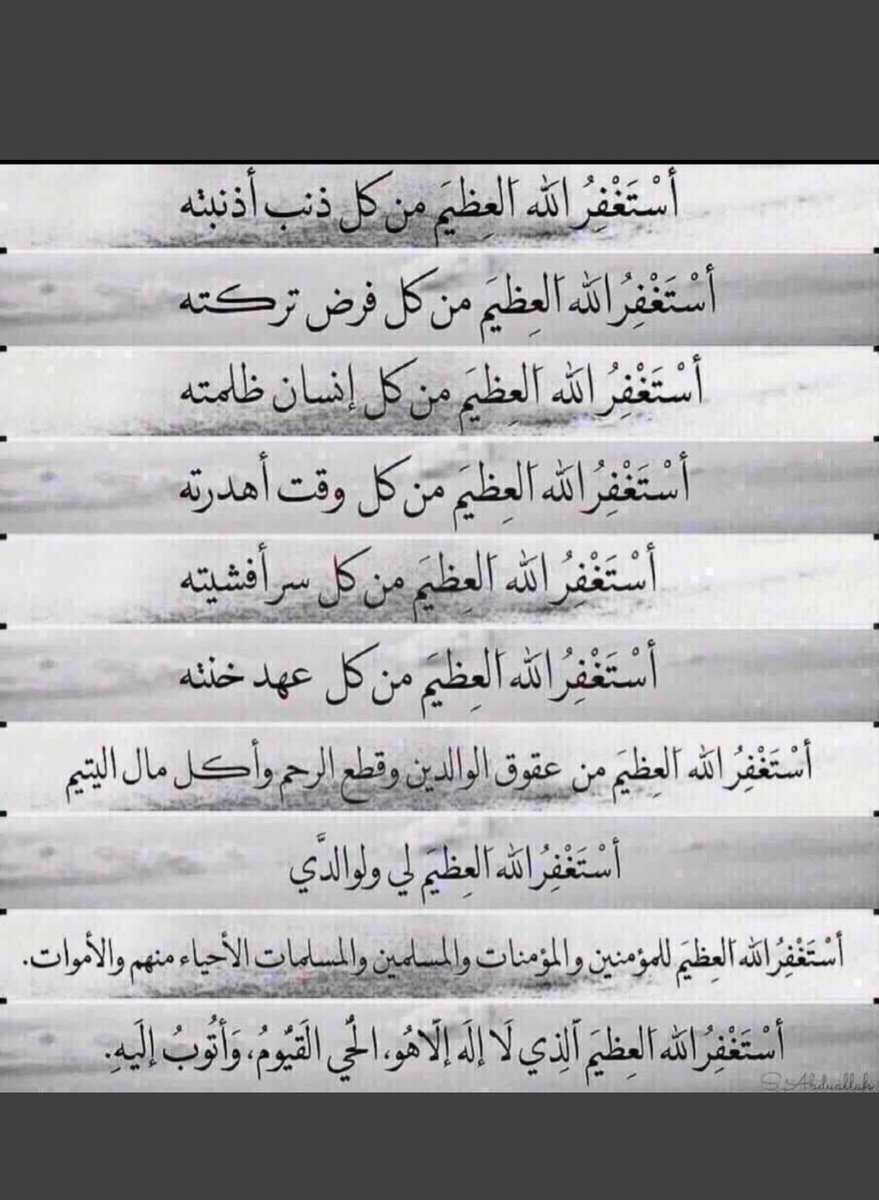 أَسْتَغْفِرُ اللّٰه اَلعِظِيَم من كل ذنب أذنبته
أَسْتَغْفِرُ اللّٰه اَلعِظِيَم من كل فرض تركته
أَسْتَغْفِرُ اللّٰه اَلعِظِيَم من كل إنسان ظلمته
أَسْتَغْفِرُ اللّٰه اَلعِظِيَم من كل وقت أهدرته
أَسْتَغْفِرُ اللّٰه اَلعِظِيَم من كل سر أفشيته
أَسْتَغْفِرُ اللّٰه اَلعِظِيَم من كل عهد خنته
أَسْتَغْفِرُ اللّٰه اَلعِظِيَم من عقوق الوالدين وقطع الرحم وأكل مال اليتيم
أَسْتَغْفِرُ اللّٰه اَلعِظِيَم لي ولوالدَّي
أَسْتَغْفِرُ اللّٰه اَلعِظِيَم للمؤمنين والمؤمنات والمسلمين والمسلمات الأحياء منهم والأموات.
أَسْتَغْفِرُ اللّٰه اَلعِظِيَم اَلَّذِي لَا إلَه إلَّا هُو، الحَّي القَيُّومُ، وَأتُوبُ إلَيهِ.
S.Abduallah